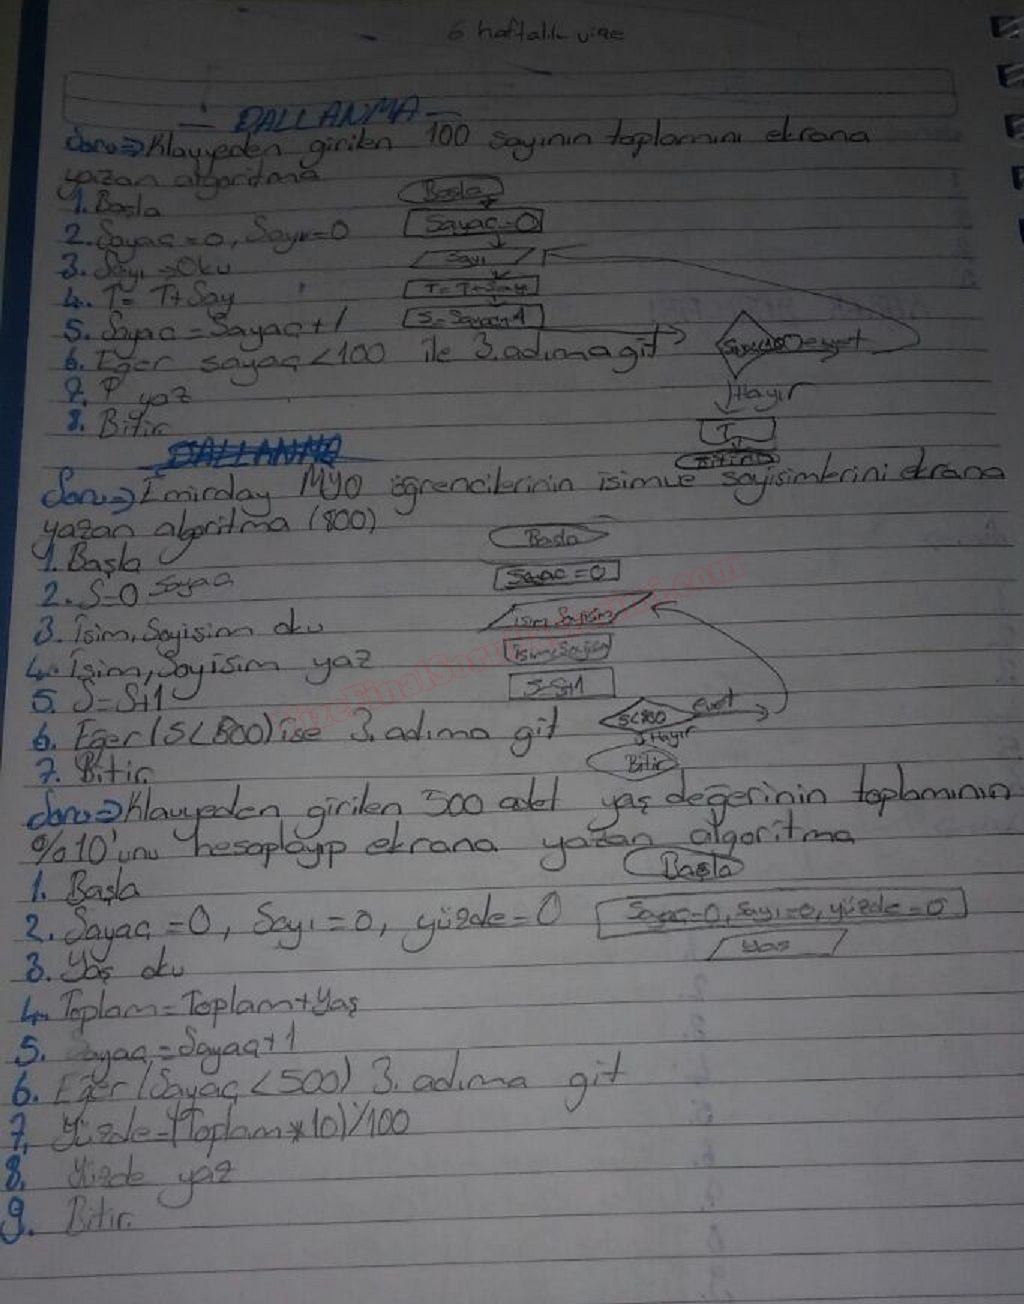 6 haftalık vize
- DALLANMA -
Soru⇒Klavyeden girilen 100 sayının toplamını ekrana
yazan algoritma
1. Başla
Başla
2. Sayaç=0, Sayı=0
Sayaç=0
3. Sayı⇒Oku
Sayı
4. T= T+Say
T=T+Sayı
5. Sayac=Sayaç+1
S=Sayaç+1
6. Eğer sayaç<100 ile 3.adıma git
evet
7. T yaz
Hayır
8. Bitir
T
DALLANMA
Soru⇒Emirday MYO öğrencilerinin isim ve soyisimlerini ekrana
yazan algoritma (800)
1. Başla
Başla
2. S=0 Sayaç
Sayaç=0
3. İsim, Soyisim oku
İsim, Soyisim
4. İsim, Soyisim yaz
İsim, Soyisim
5. S=S+1
S=S+1
6. Eğer (S<800) ise 3. adıma git
S<800
evet
Hayır
7. Bitir
Bitir
Soru⇒Klavyeden girilen 500 adet yaş değerinin toplamının
%10'unu hesaplayıp ekrana yazan algoritma
1. Başla
Başla
2. Sayaç=0, Sayı=0, yüzde=0
Sayaç=0, Sayı=0, yüzde=0
3. Yaş oku
yaş
4. Toplam=Toplam+Yaş
5. Sayaç=Sayaç+1
6. Eğer (Sayaç<500) 3. adıma git
7. Yüzde=(Toplam*10)/100
8. Yüzde yaz
9. Bitir